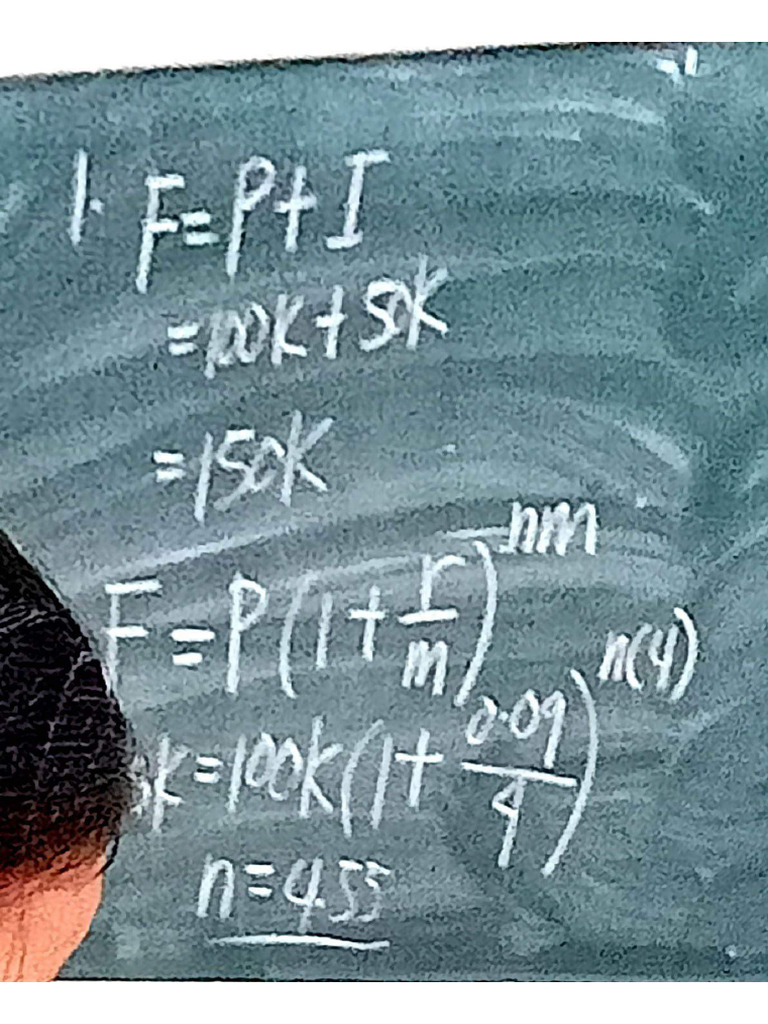 1. F=P+I
=100K+50K
=150K
F=P(1+r/m)^nm
K=100K(1+0.09/4)^n(4)
n=4.55